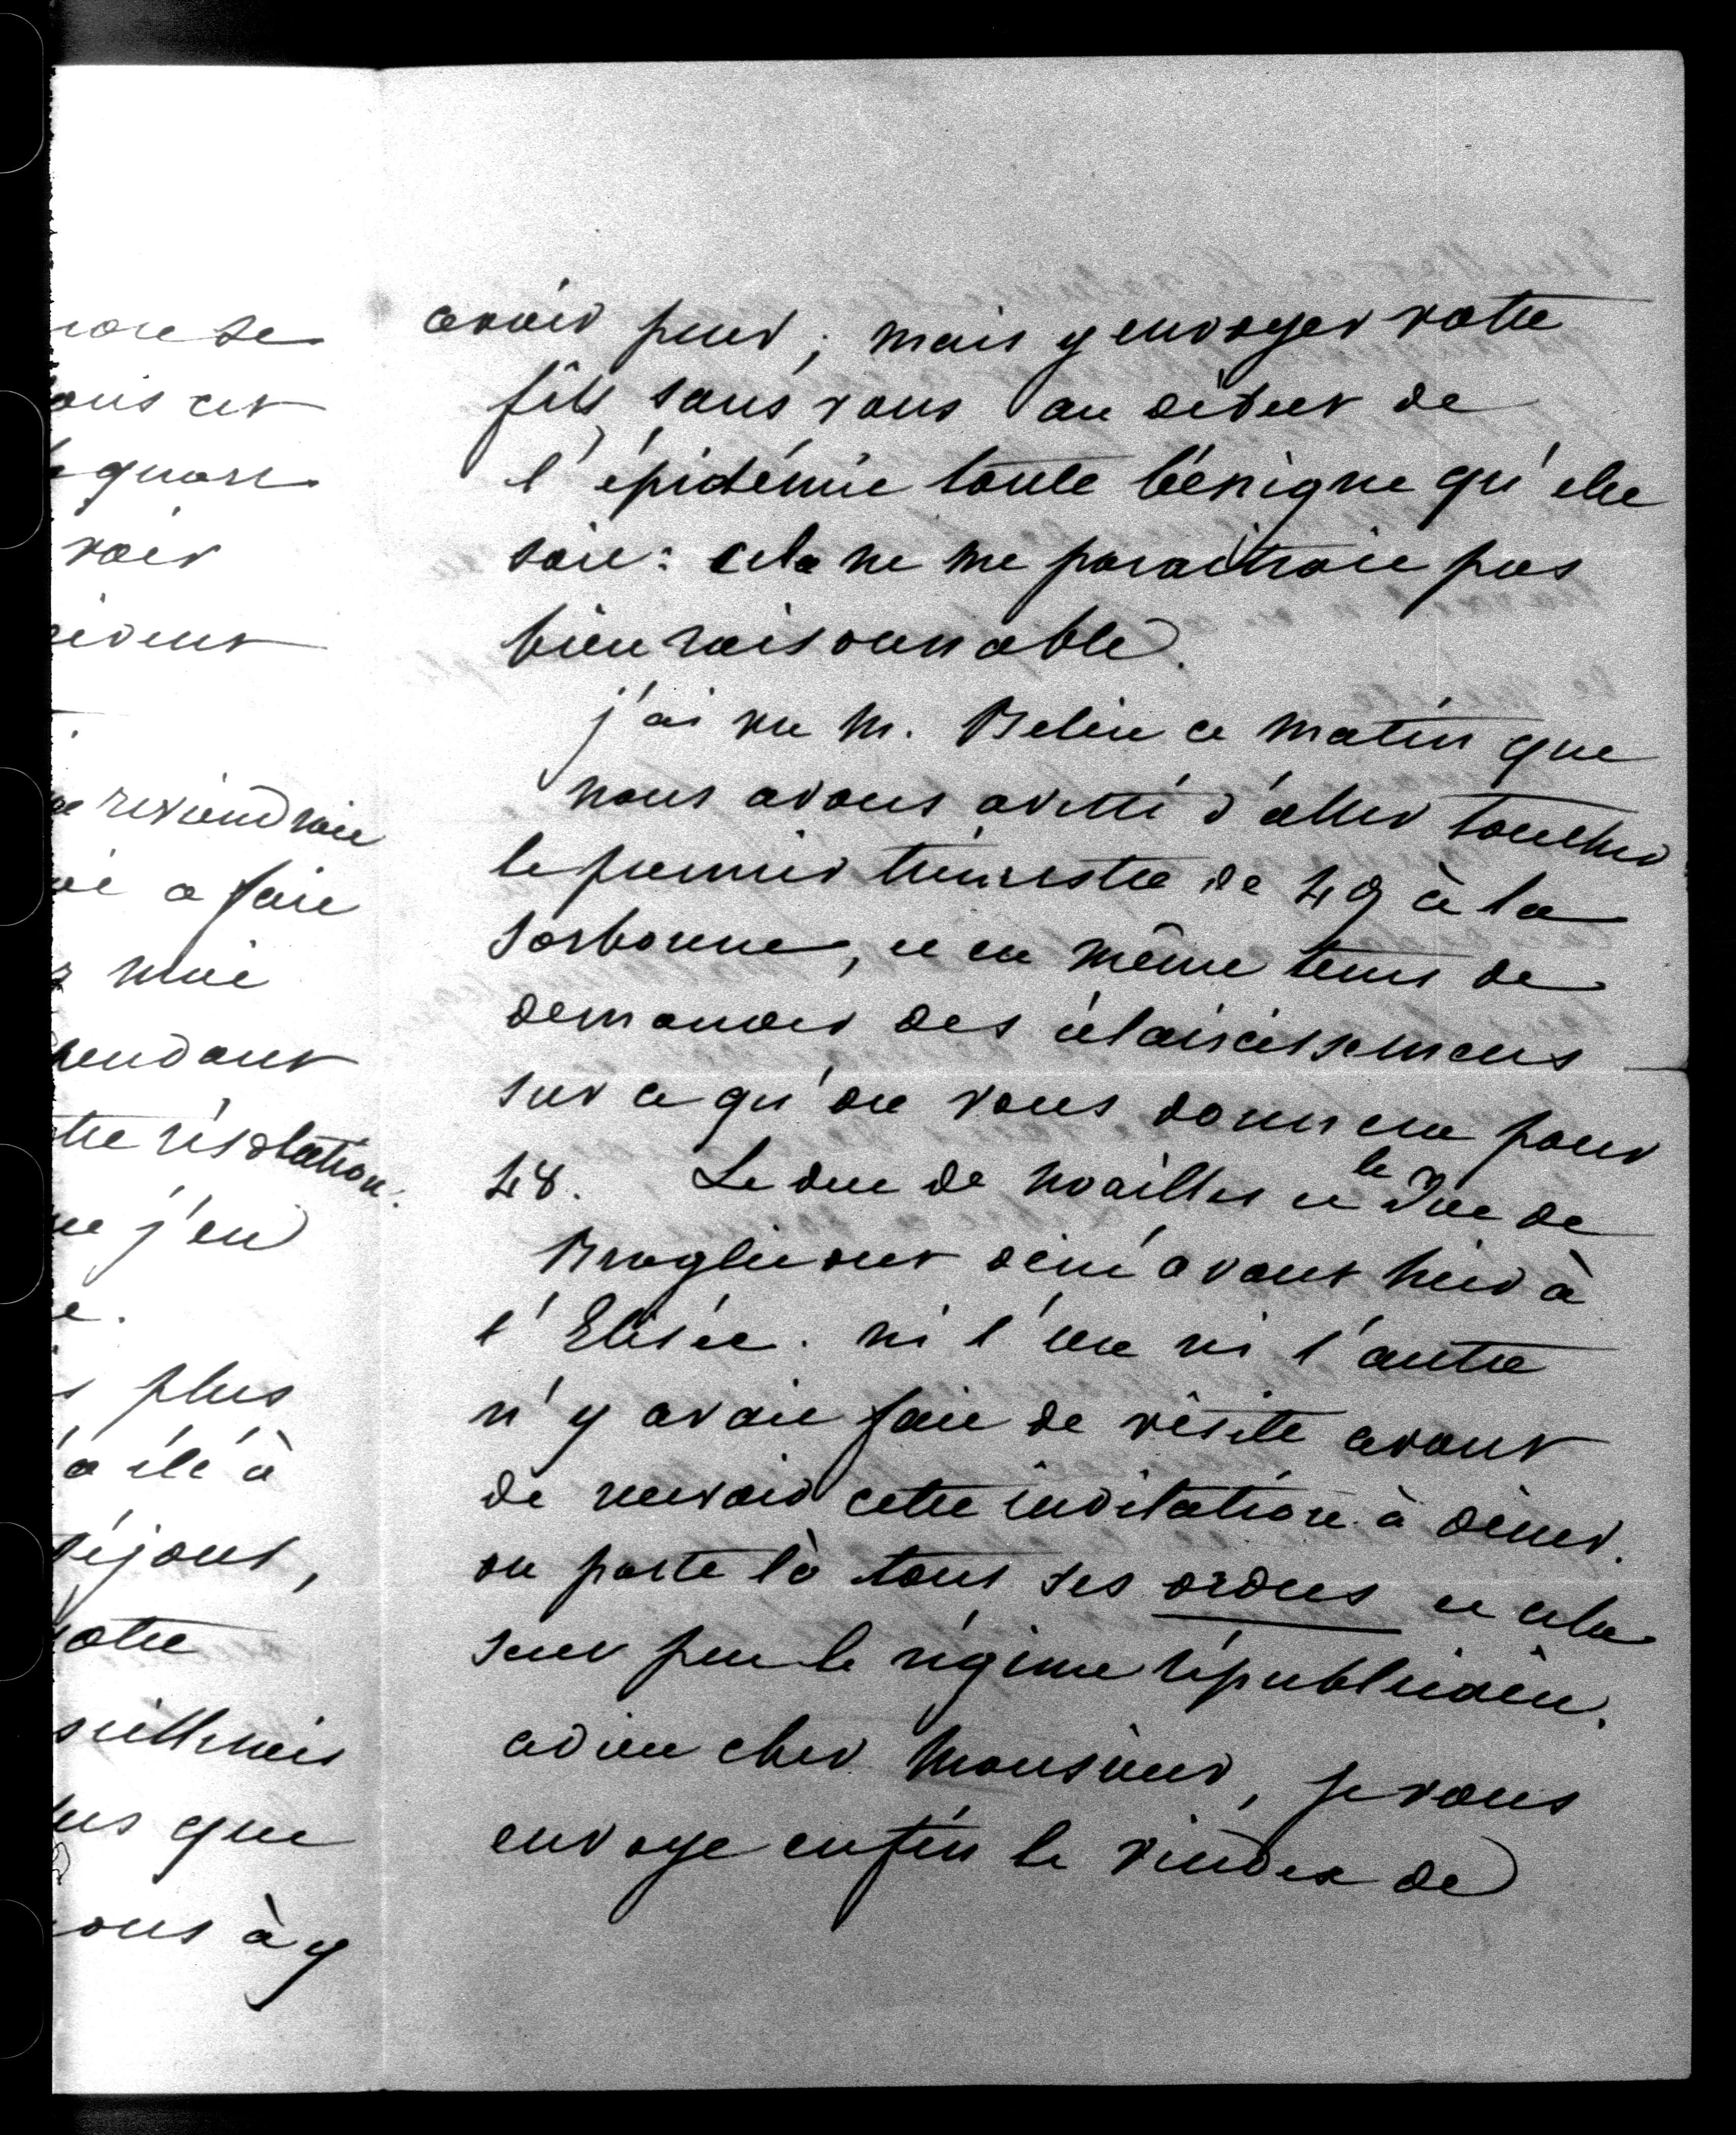 avoir peur; mais y envoyer votre
fils sans vous au début de
l'épidémie toute bénigne qu'elle
soit: cela ne me paraitroit pas
bien raisonnable.
j'ai vu M. Belin ce matin que
nous avons avisé d'aller toucher
le premier trimestre de 49 à la
Sorbonne, et en même tems de
demander des éclaircissemens
sur ce qu'on vous donnera pour
48. Le duc de Noailles et le Duc de
Broglie ont diné avant hier à
l'Elisée. ni l'un ni l'autre
n'y avait fait de visite avant
de recevoir cette invitation à diner.
on porte là tous ses ordres et cela
sent peu le régime républicain.
adieu cher Monsieur, je vous
envoye enfin le vindex de
ous cet
quart
voir
reviendrait
a fait
pendant
tre résolution.
j'en
plus
a été à
séjour,
votre
que
ous à y